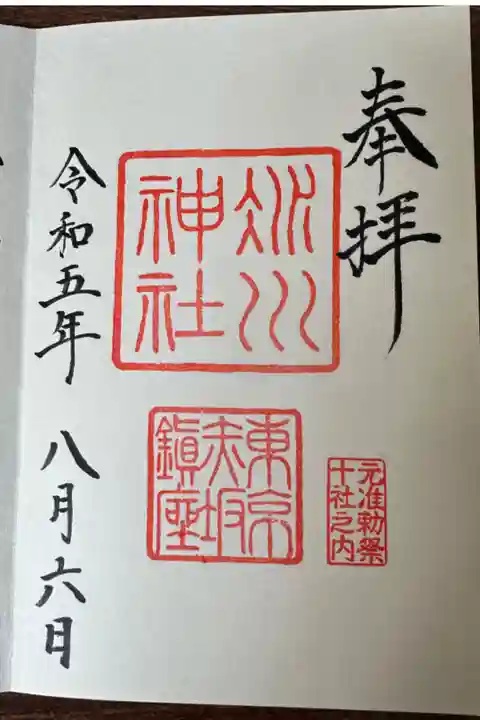 奉拝
元准勅祭
十社之内
氷川
神社
東京
赤坂
鎮座
令和五年 八月六日